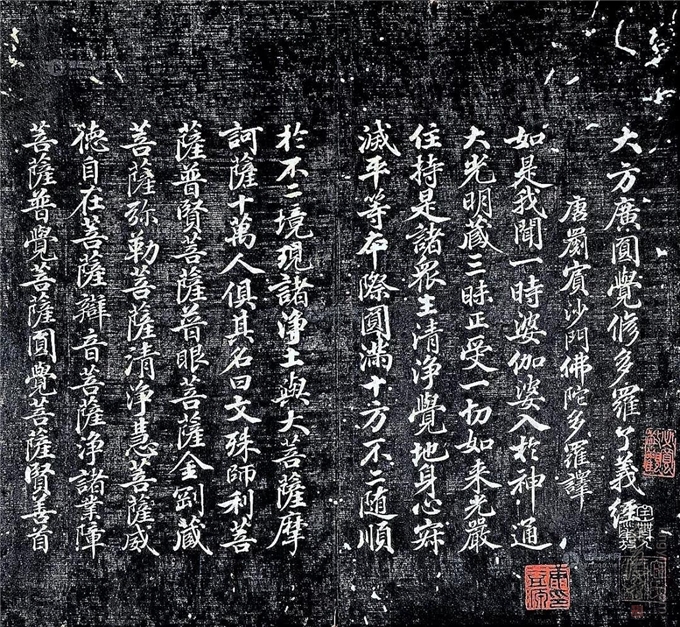 大方廣圓覺修多羅了義経
唐罽賓沙門佛陀多羅譯
如是我聞一時婆伽婆入於神通
大光明藏三昧正受一切如来光嚴
住持是諸衆生清淨覺地身心寂
滅平等夲際圓滿十方不二随順
於不二境現諸淨土與大菩薩摩
訶薩十萬人俱其名曰文殊師利菩
薩普賢菩薩普眼菩薩金剛藏
菩薩弥勒菩薩清淨慧菩薩威
德自在菩薩辯音菩薩淨諸業障
菩薩普覺菩薩圓覺菩薩賢善首